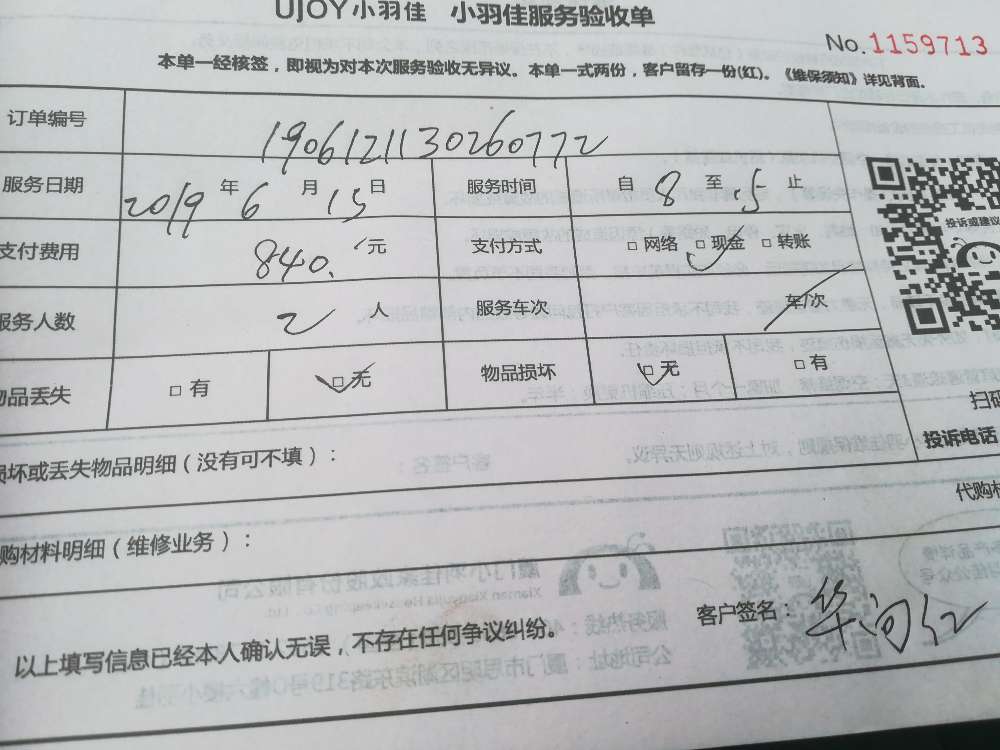 UJOY小羽佳 小羽佳服务验收单
No.1159713
本单一经核签，即视为对本次服务验收无异议。本单一式两份，客户留存一份(红)。《维保须知》详见背面。
订单编号 1906121130260772
服务日期 2019年6月15日 服务时间 自8至5止
支付费用 840.元 支付方式 □网络 □现金 □转账
服务人数 2人 服务车次 车/次
物品丢失 □有 □无 物品损坏 □无 □有
投诉或建议
扫码
投诉电话
损坏或丢失物品明细（没有可不填）：
代购材
购材料明细（维修业务）：
以上填写信息已经本人确认无误，不存在任何争议纠纷。
客户签名：